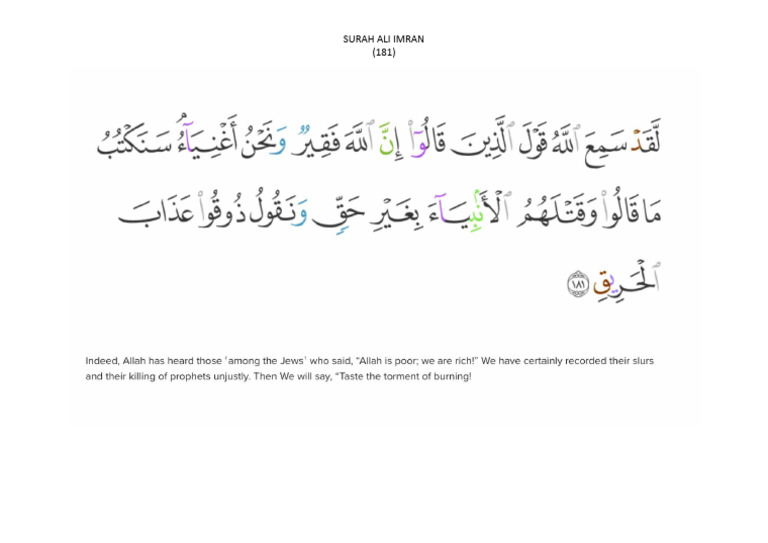 SURAH ALI IMRAN
(181)
لَّقَدْ سَمِعَ ٱللَّهُ قَوْلَ ٱلَّذِينَ قَالُوٓا۟ إِنَّ ٱللَّهَ فَقِيرٌ وَنَحْنُ أَغْنِيَآءُ ۘ سَنَكْتُبُ
مَا قَالُوا۟ وَقَتْلَهُمُ ٱلْأَنۢبِيَآءَ بِغَيْرِ حَقٍّ وَنَقُولُ ذُوقُوا۟ عَذَابَ
ٱلْحَرِيقِ ١٨١
Indeed, Allah has heard those ˹among the Jews˺ who said, “Allah is poor; we are rich!” We have certainly recorded their slurs
and their killing of prophets unjustly. Then We will say, “Taste the torment of burning!